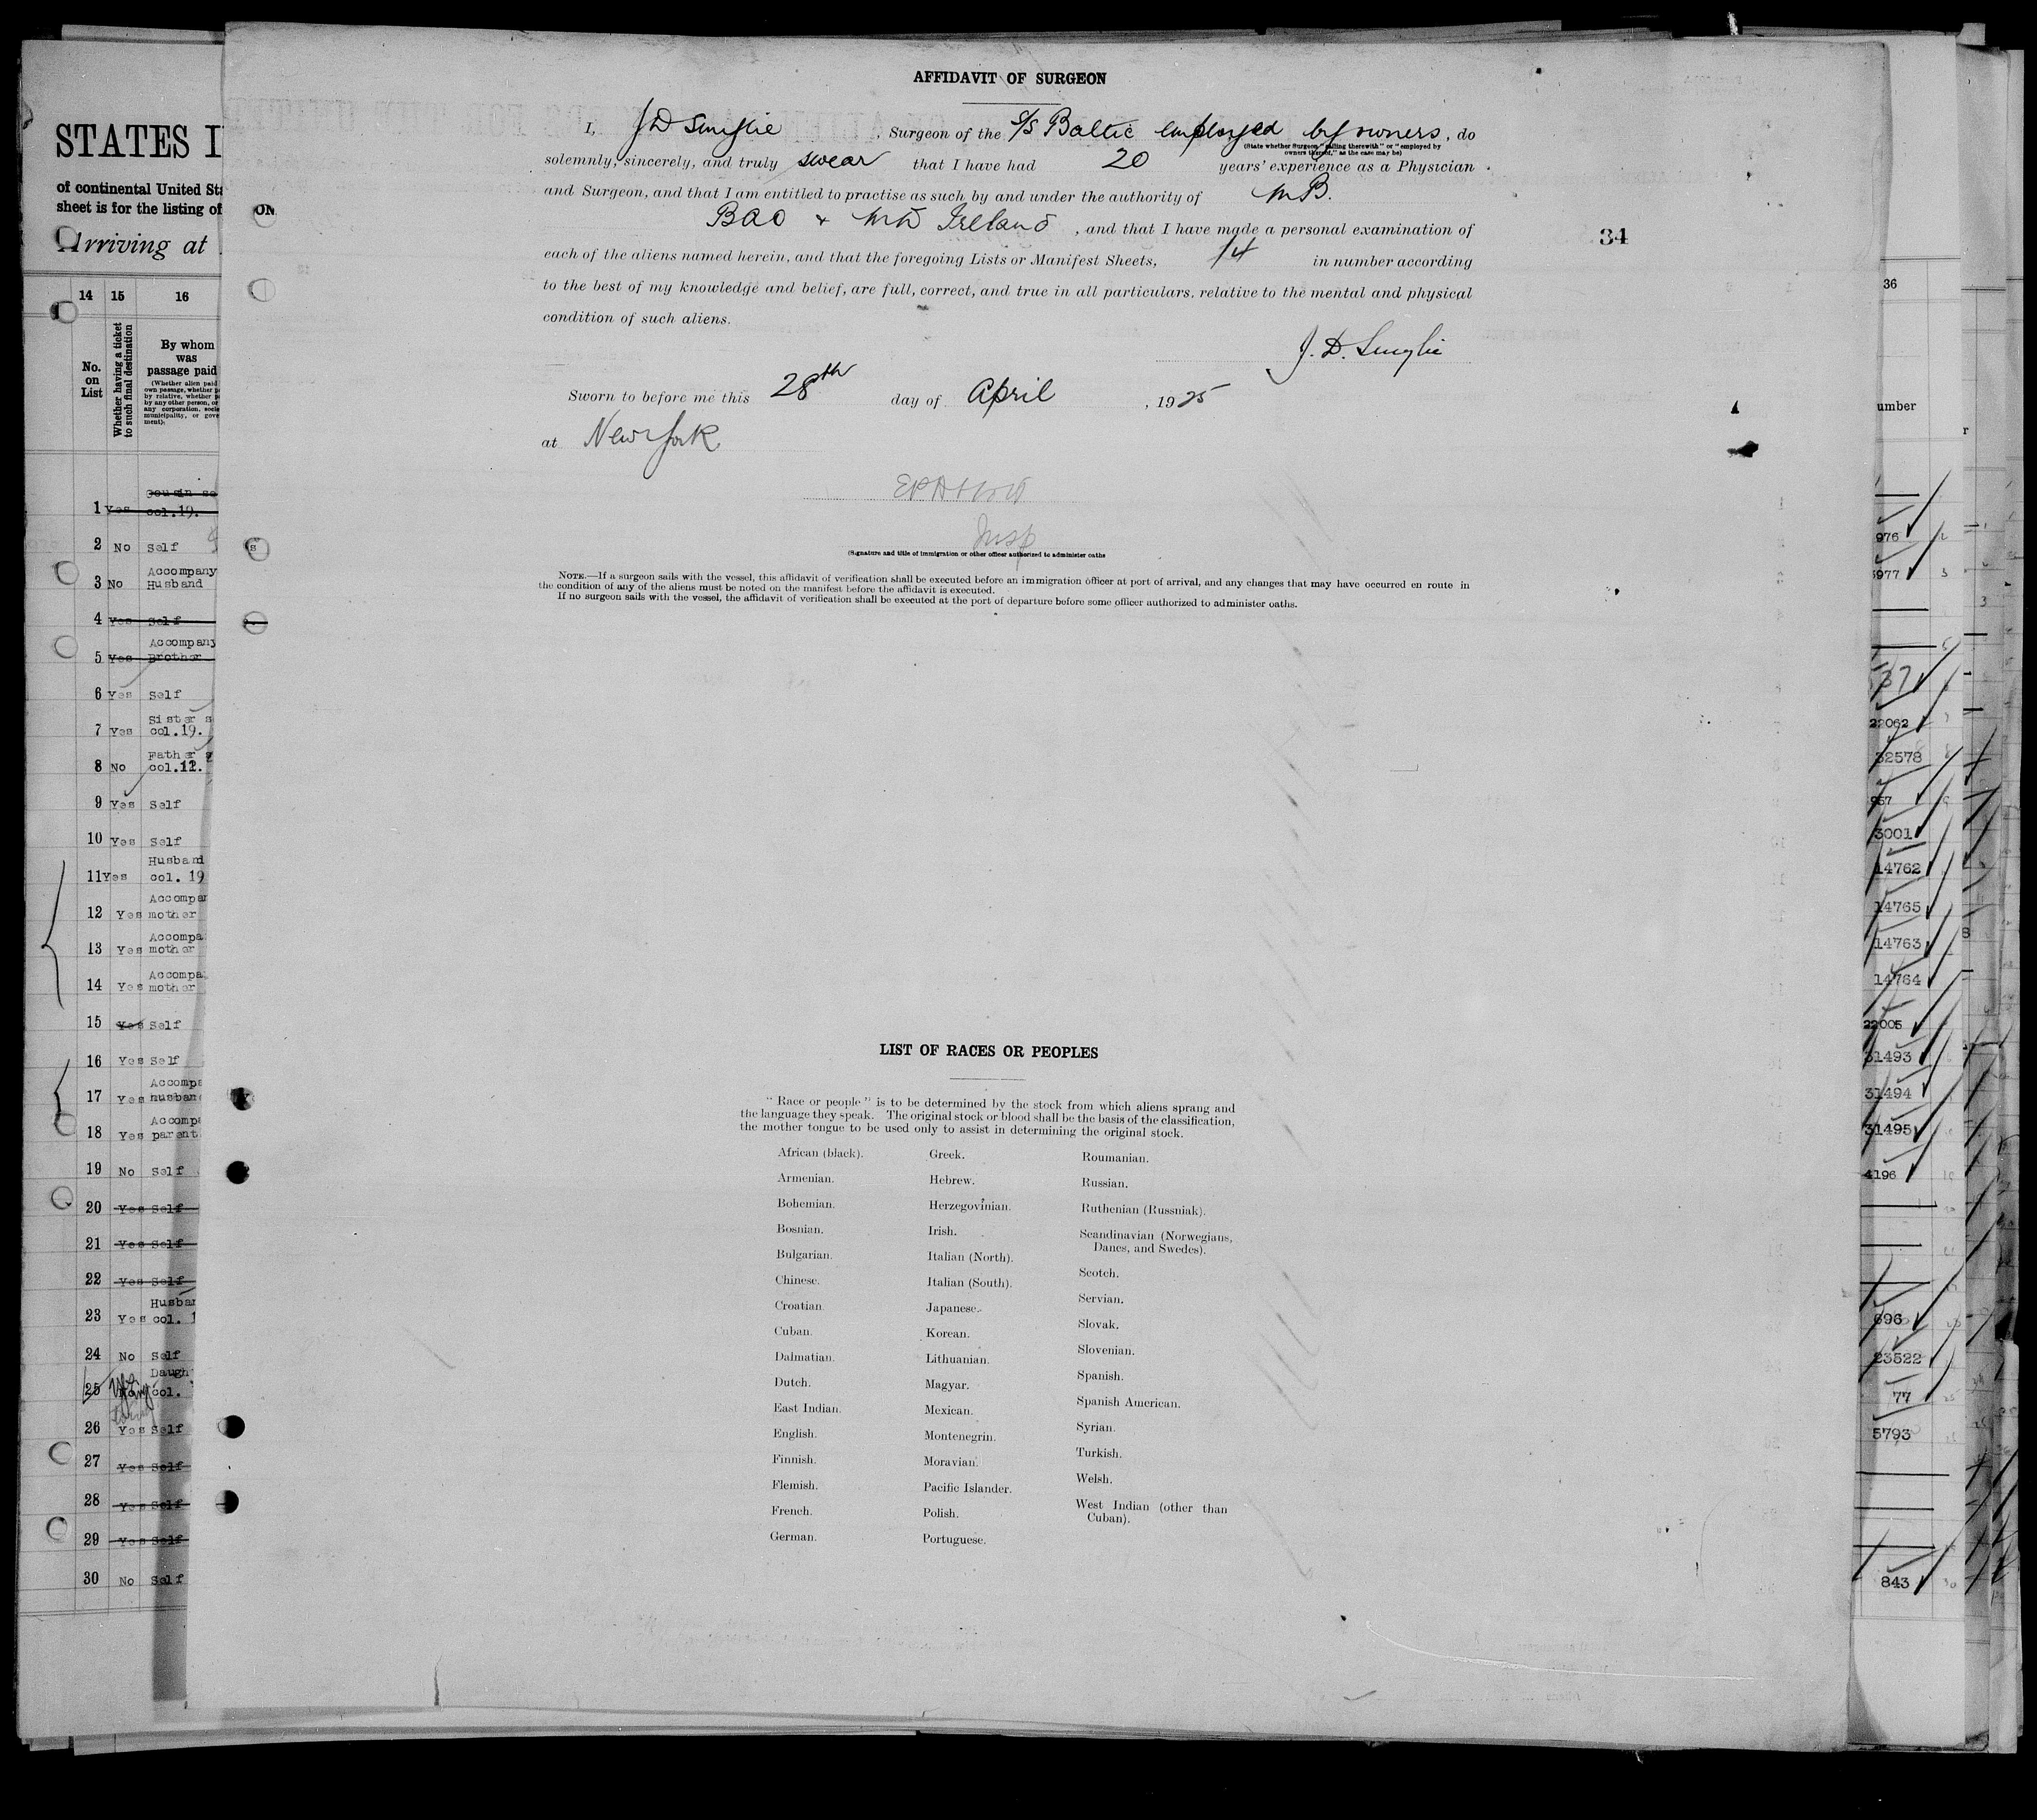 AFFIDAVIT OF SURGEON
I, J D Smylie, Surgeon of the S/S Baltic employed by owners, do
(State whether Surgeon "sailing therewith" or "employed by
owners thereof," as the case may be)
solemnly, sincerely, and truly swear that I have had 20 years' experience as a Physician
and Surgeon, and that I am entitled to practise as such by and under the authority of M B.
BAO & Ireland, and that I have made a personal examination of
each of the aliens named herein, and that the foregoing Lists or Manifest Sheets, 14 in number according
to the best of my knowledge and belief, are full, correct, and true in all particulars, relative to the mental and physical
condition of such aliens.
J. D. Smylie
Sworn to before me this 28th day of April, 1925
at New York
Insp
(Signature and title of immigration or other officer authorized to administer oaths
NOTE.—If a surgeon sails with the vessel, this affidavit of verification shall be executed before an immigration officer at port of arrival, and any changes that may have occurred en route in
the condition of any of the aliens must be noted on the manifest before the affidavit is executed.
If no surgeon sails with the vessel, the affidavit of verification shall be executed at the port of departure before some officer authorized to administer oaths.
34
LIST OF RACES OR PEOPLES
"Race or people" is to be determined by the stock from which aliens sprang and
the language they speak. The original stock or blood shall be the basis of the classification,
the mother tongue to be used only to assist in determining the original stock.
African (black).
Armenian.
Bohemian.
Bosnian.
Bulgarian.
Chinese.
Croatian.
Cuban.
Dalmatian.
Dutch.
East Indian.
English.
Finnish.
Flemish.
French.
German.
Greek.
Hebrew.
Herzegovinian.
Irish.
Italian (North).
Italian (South).
Japanese.
Korean.
Lithuanian.
Magyar.
Mexican.
Montenegrin.
Moravian.
Pacific Islander.
Polish.
Portuguese.
Roumanian.
Russian.
Ruthenian (Russniak).
Scandinavian (Norwegians,
Danes, and Swedes).
Scotch.
Servian.
Slovak.
Slovenian.
Spanish.
Spanish American.
Syrian.
Turkish.
Welsh.
West Indian (other than
Cuban).
STATES
of continental United
sheet is for the listing of
ON
Arriving at
14 15 16
No.
on
List
Whether having a ticket
to such final destination
By whom
was
passage paid
(Whether alien paid
own passage, whether
by relative, whether
by any other person, or
any corporation,
municipality, or
ment).
Cousin
1 Yes col.19.
2 No Self
Accompany
3 No Husband
4 Yes Self
Accompany
5 Yes Brother
6 Yes Self
Sister
7 Yes col.19.
Father
8 No col.12.
9 Yes Self
10 Yes Self
Husband
11 Yes col. 19
12 Yes mother
13 Yes mother
14 Yes mother
15 Yes Self
16 Yes Self
17 Yes husband
18 Yes parent
19 No Self
20 Yes Self
21 Yes Self
22 Yes Self
23 Yes col. 1
24 No Self
25 col.
26 Yes Self
27 Yes Self
28 Yes Self
29 Yes Self
30 No Self
36
umber
976
977
37
22062
32578
957
3001
14762
14765
14763
14764
22005
31493
31494
31495
4196
696
23522
77
5793
843